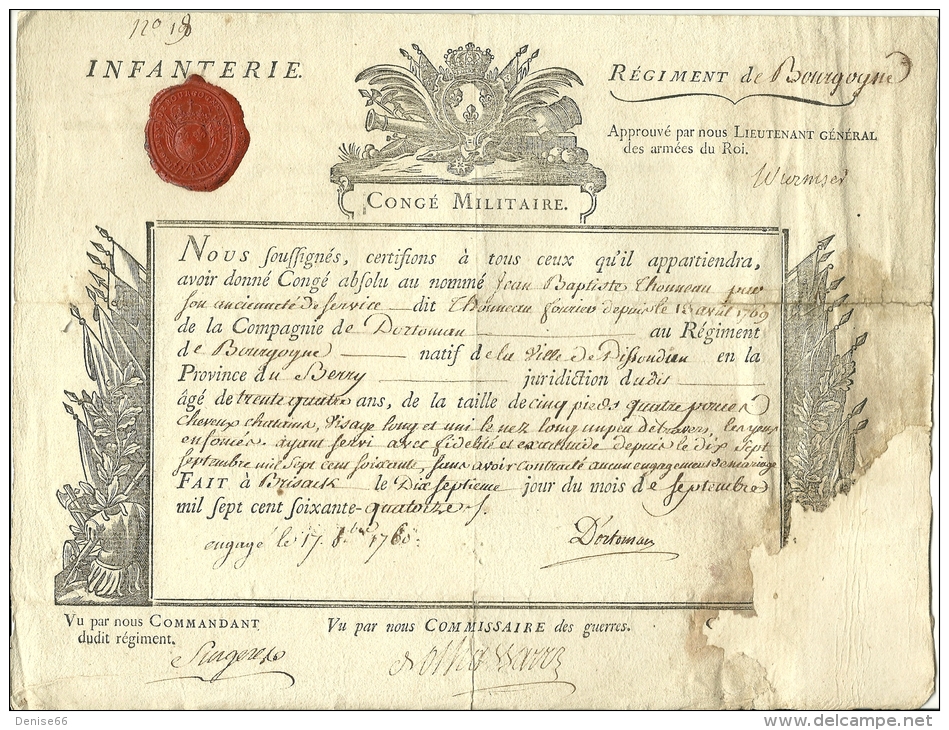 No 18
INFANTERIE.
RÉGIMENT de Bourgogne
Approuvé par nous LIEUTENANT GÉNÉRAL
des armées du Roi.
Wurmser
CONGÉ MILITAIRE.
Nous souſſignés, certifions à tous ceux qu'il appartiendra,
avoir donné Congé absolu au nommé Jean Baptiste Thonneau pour
son ancienneté de service dit Thonneau fourier depuis le 13 avril 1769
de la Compagnie de Dortoman au Régiment
de Bourgogne natif de la Ville de Dissoudun en la
Province du Berry juridiction dudit
âgé de trente quatre ans, de la taille de cinq pieds quatre pouces
cheveux chatains, visage long et uni le nez long un peu de travers, les yeux
enfoncés ayant servi avec fidelité et exactitude depuis le dix Sept
Septembre mil Sept cent soixante, sans avoir contracté aucun engagement de mariage
FAIT à Brisack le Dix septieme jour du mois de Septembre
mil sept cent soixante-quatorze
engagé le 17. 1760.
Dortoman
Vu par nous COMMANDANT
dudit régiment.
Vu par nous COMMISSAIRE des guerres.
Surgeres
Denise66
www.delcampe.net